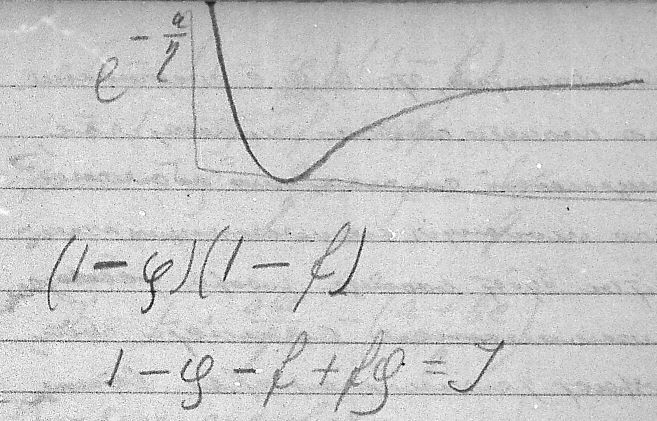 e^{-\frac{a}{η}}
(1-φ)(1-f)
1-φ-f+fφ=J